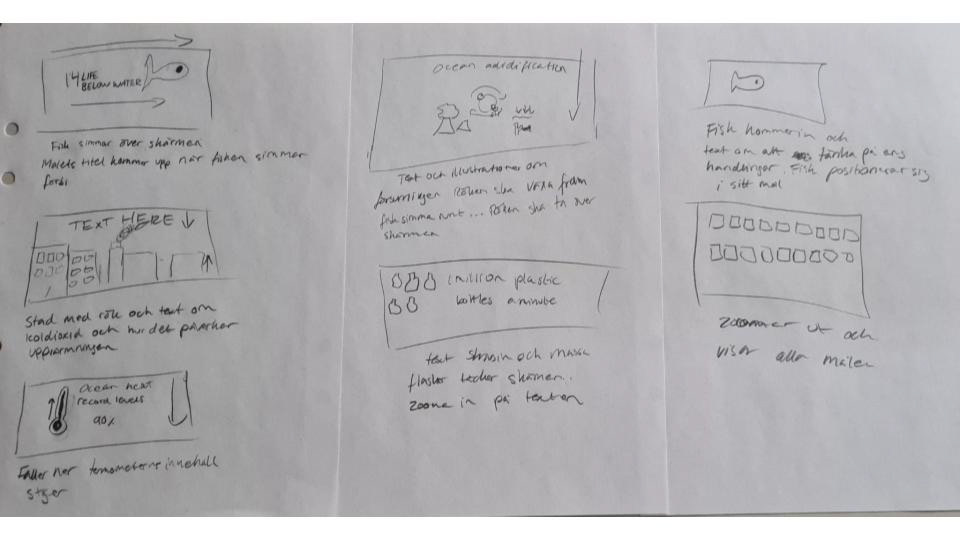 14 LIFE
BELOW WATER
Fisk simmar över skärmen
Målets titel kommer upp när fisken simmar
förbi
TEXT HERE
Stad med rök och text om
koldioxid och hur det påverkar
uppvärmningen
Ocean heat
record levels
90%
Faller ner termometerns innehåll
stiger
Ocean adidification
Text och illustrationer om
försurningen Röken ska växa fram
fisk simma runt... Röken ska ta över
skärmen
1 million plastic
bottles a minute
text skrivs in och massa
flaskor täcker skärmen.
zooma in på texten
Fisk kommer in och
text om att tänka på ens
handlingar. Fisk positionerar sig
i sitt mål
zoomar ut och
visar alla målen